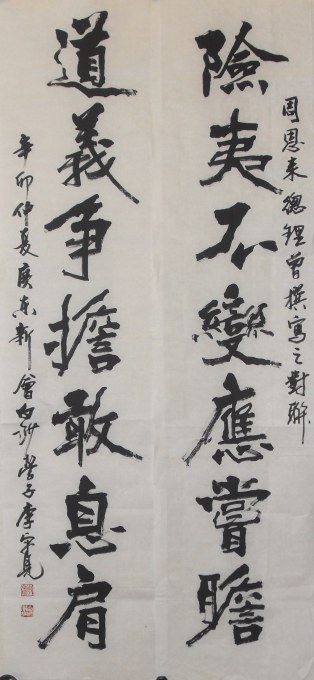 周恩来總理曾撰寫之對聯
險夷不變應嘗瞻
道義爭擔敢息肩
辛卯仲夏廣東新會白沙營子李宗